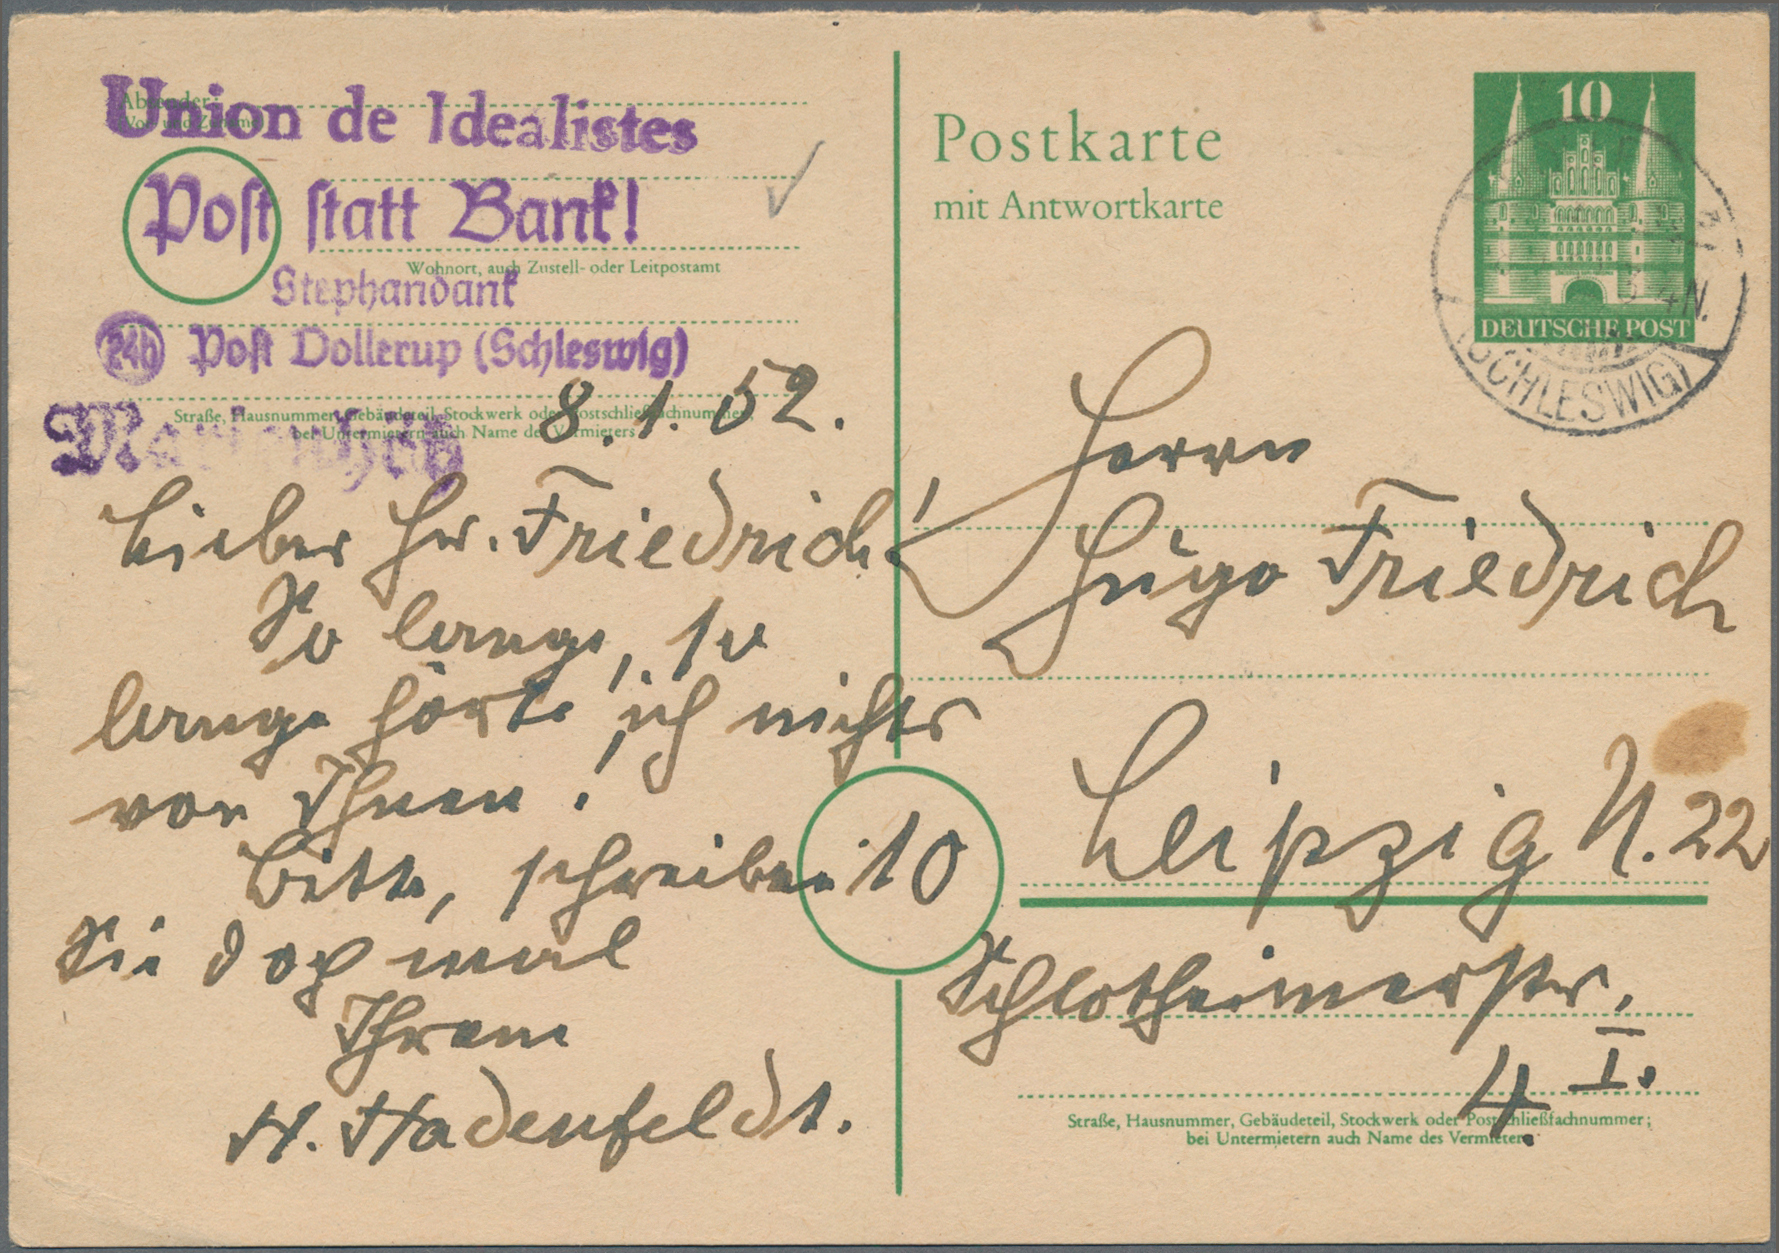 Absender:
Vor- und Zuname
Union de Idealistes
Post statt Bank!
Wohnort, auch Zustell- oder Leitpostamt
Stephandank
24b Post Dollerup (Schleswig)
Straße, Hausnummer, Gebäudeteil, Stockwerk oder Postschließfachnummer;
bei Untermietern auch Name des Vermieters
8.1.52.
Lieber Hr. Friedrich!
So lange, so
lange hörte ich nichts
von Ihnen!
Bitte, schreiben
Sie doch mal
Ihrem
H. Hadenfeldt.
Postkarte
mit Antwortkarte
10
DEUTSCHE POST
(SCHLESWIG)
Herrn
Hugo Friedrich
10
Leipzig N. 22
Schlotheimerstr.
4. I.
Straße, Hausnummer, Gebäudeteil, Stockwerk oder Postschließfachnummer;
bei Untermietern auch Name des Vermieters